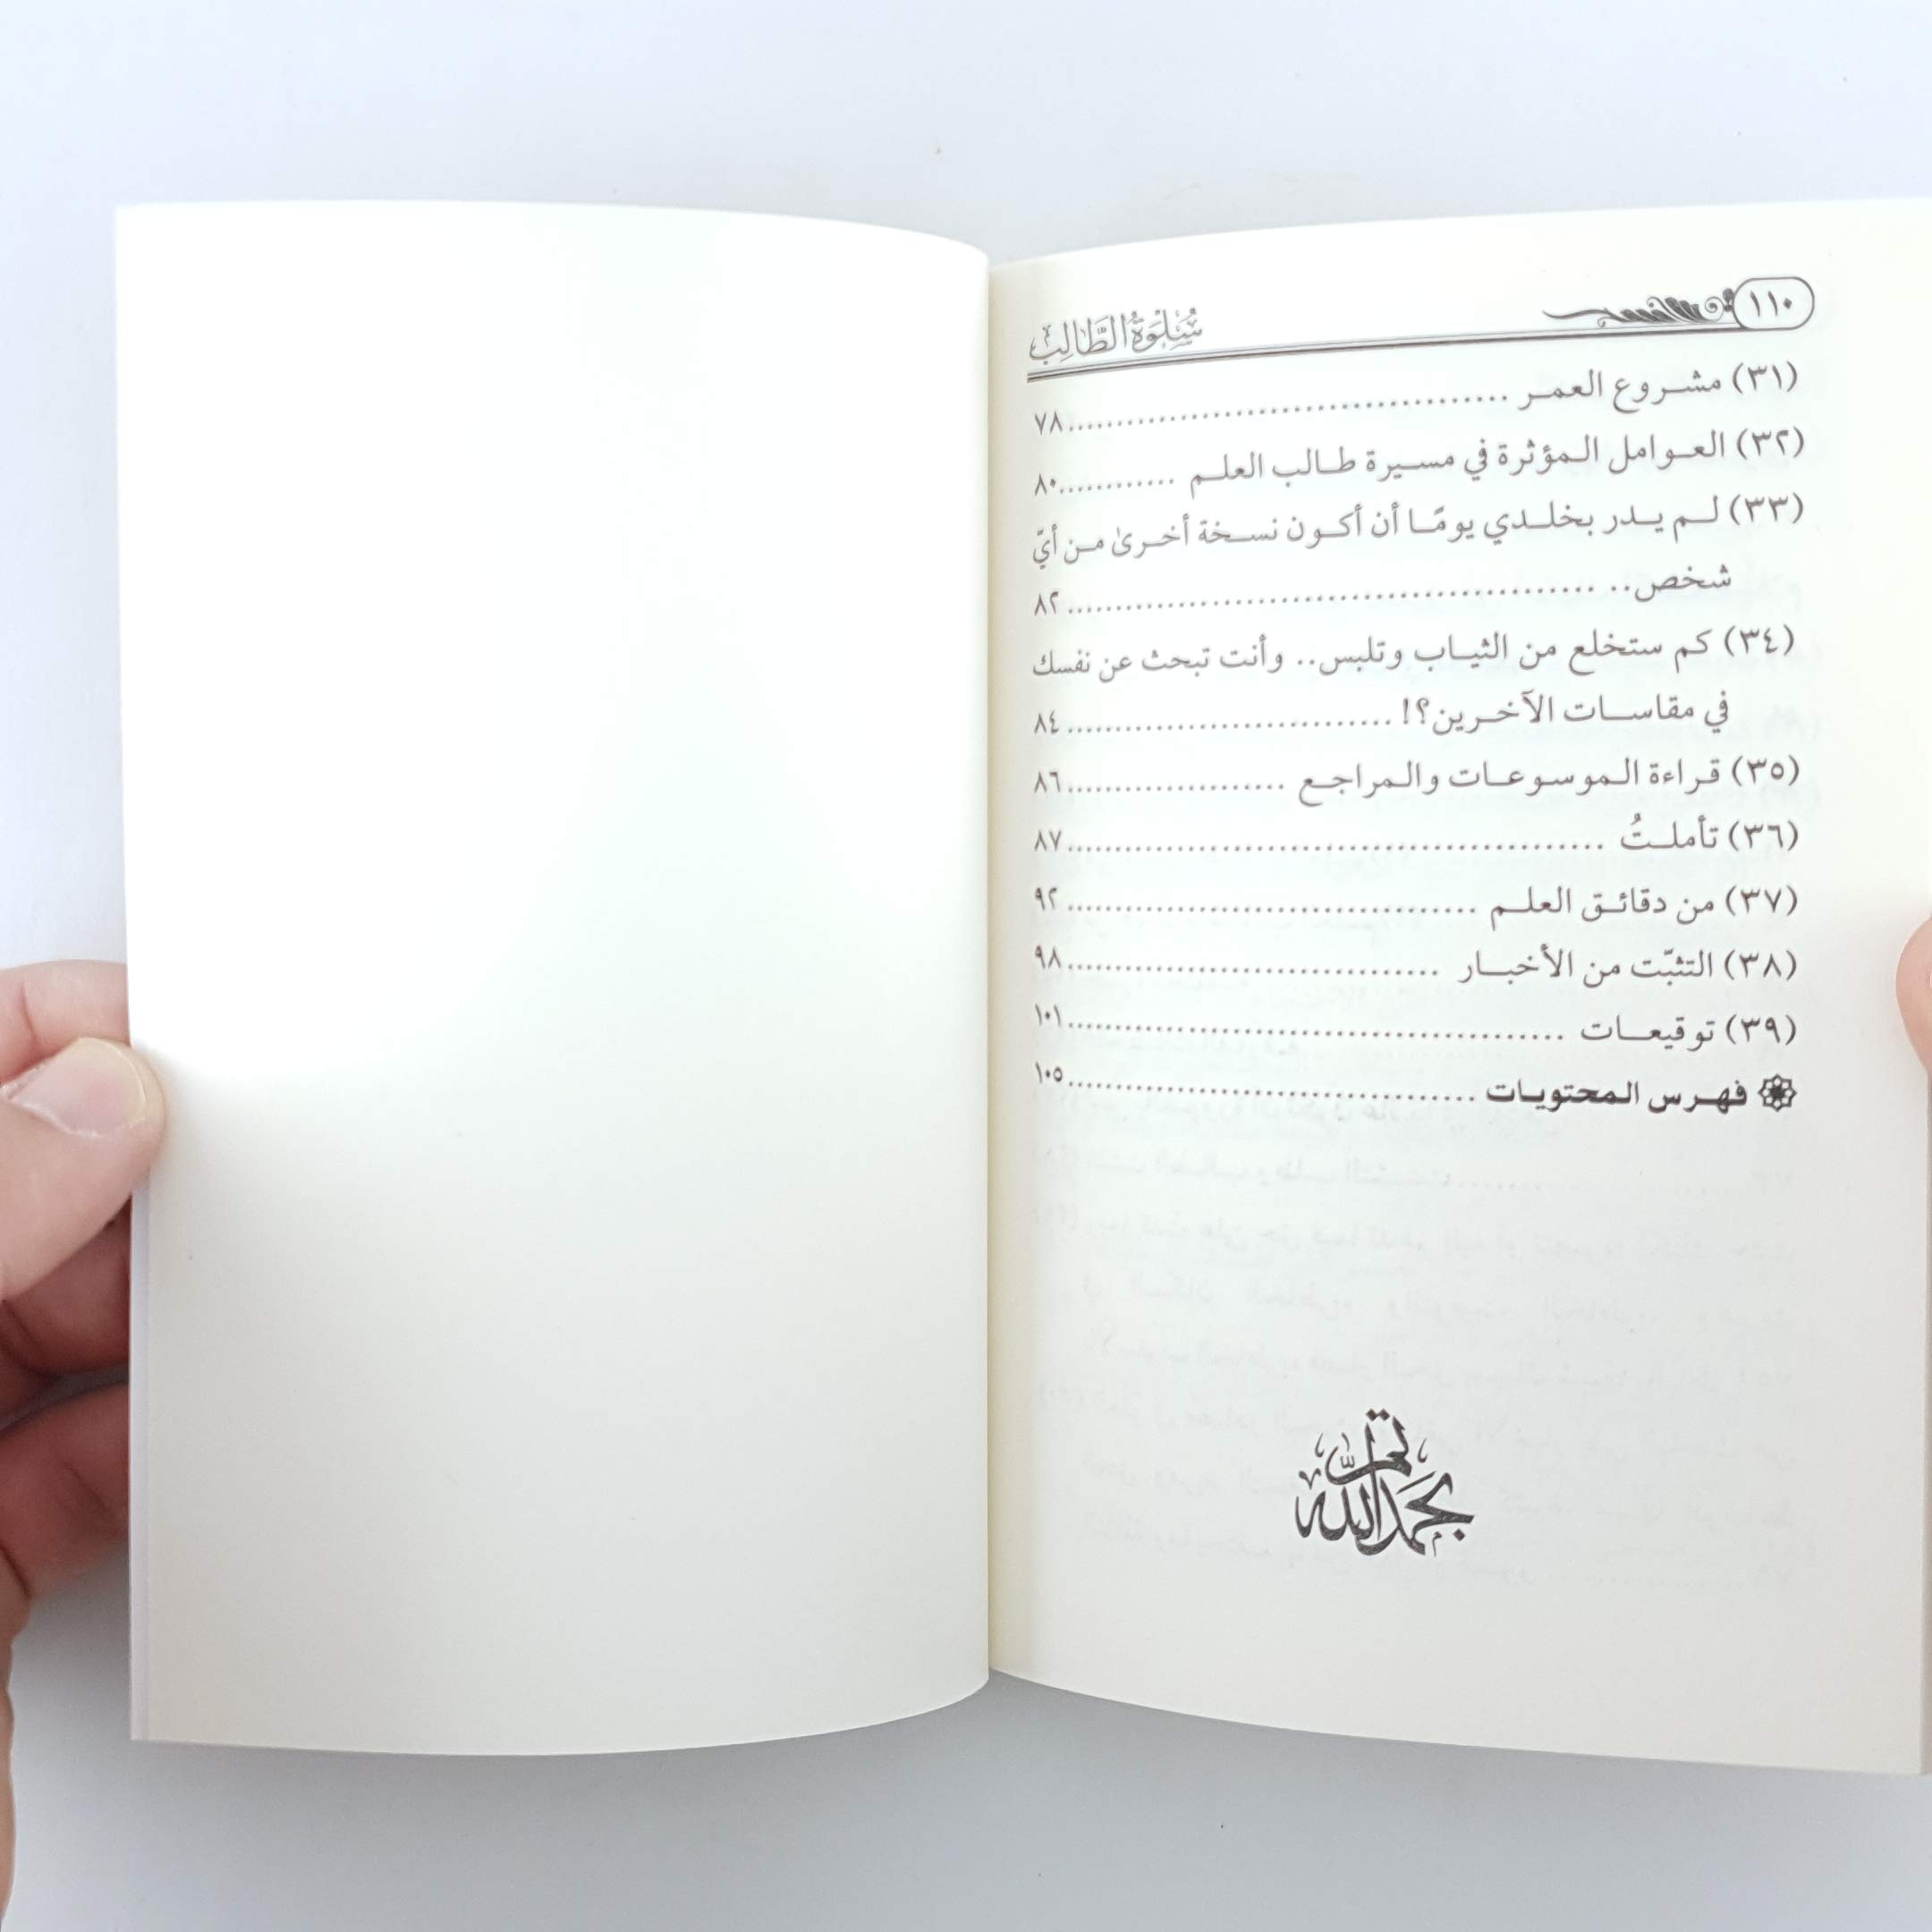 ١١٠ سُلوَةُ الطَّالِب
(٣١) مشروع العمر ........ ٧٨
(٣٢) العوامل المؤثرة في مسيرة طالب العلم ........ ٨٠
(٣٣) لم يدر بخلدي يومًا أن أكون نسخة أخرىٰ من أيّ
شخص.. ........ ٨٢
(٣٤) كم ستخلع من الثياب وتلبس.. وأنت تبحث عن نفسك
في مقاسات الآخرين؟! ........ ٨٤
(٣٥) قراءة الموسوعات والمراجع ........ ٨٦
(٣٦) تأملتُ ........ ٨٧
(٣٧) من دقائق العلم ........ ٩٢
(٣٨) التثبّت من الأخبار ........ ٩٨
(٣٩) توقيعات ........ ١٠١
فهرس المحتويات ........ ١٠٥
تم
بحمد الله